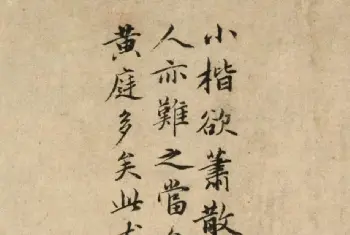 小楷欲蕭散
人亦難之當
黄庭多矣此